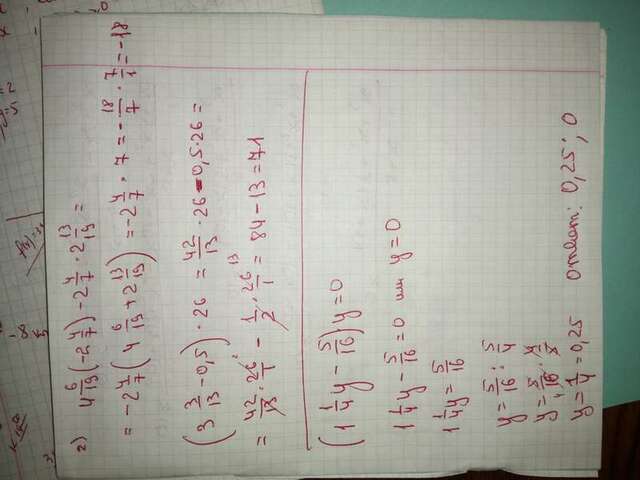 2) 4 6/19 (-2 4/7) - 2 4/7 · 2 13/19 =
= -2 4/7 (4 6/19 + 2 13/19) = -2 4/7 · 7 = -18/7 · 7/1 = -18
(3 3/13 - 0,5) · 26 = 42/13 · 26 - 0,5 · 26 =
= 42/13 · 26/1 - 1/2 · 26/1 = 84 - 13 = 71
(1 1/4 y - 5/16) y = 0
1 1/4 y - 5/16 = 0 или y = 0
1 1/4 y = 5/16
y = 5/16 : 5/4
y = 5/16 · 4/5
y = 1/4 = 0,25 Ответ: 0,25; 0